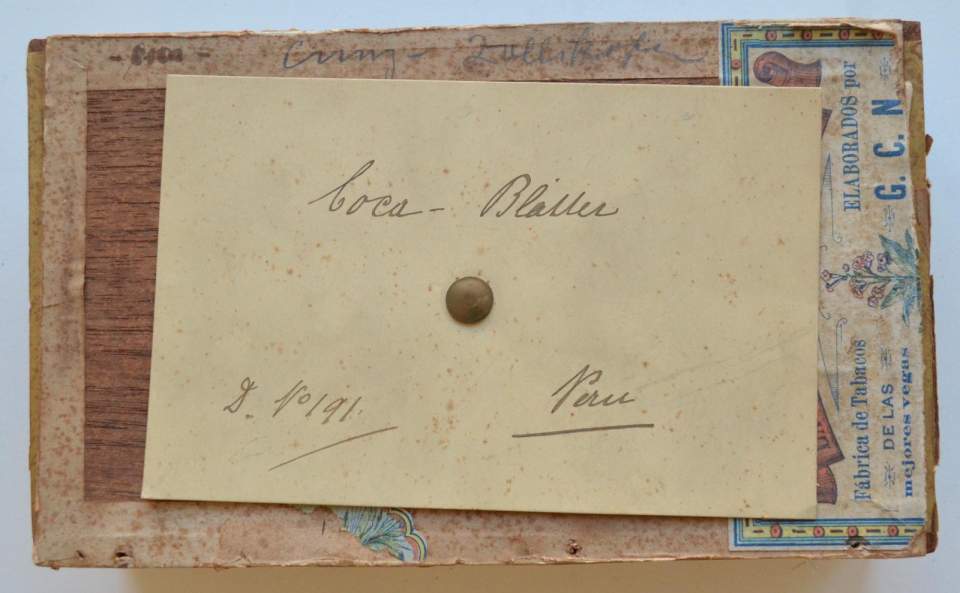 Coca - Blätter
D. No 191.
Peru
ELABORADOS por
G. C. N
Fábrica de Tabacos
DE LAS
mejores vegas